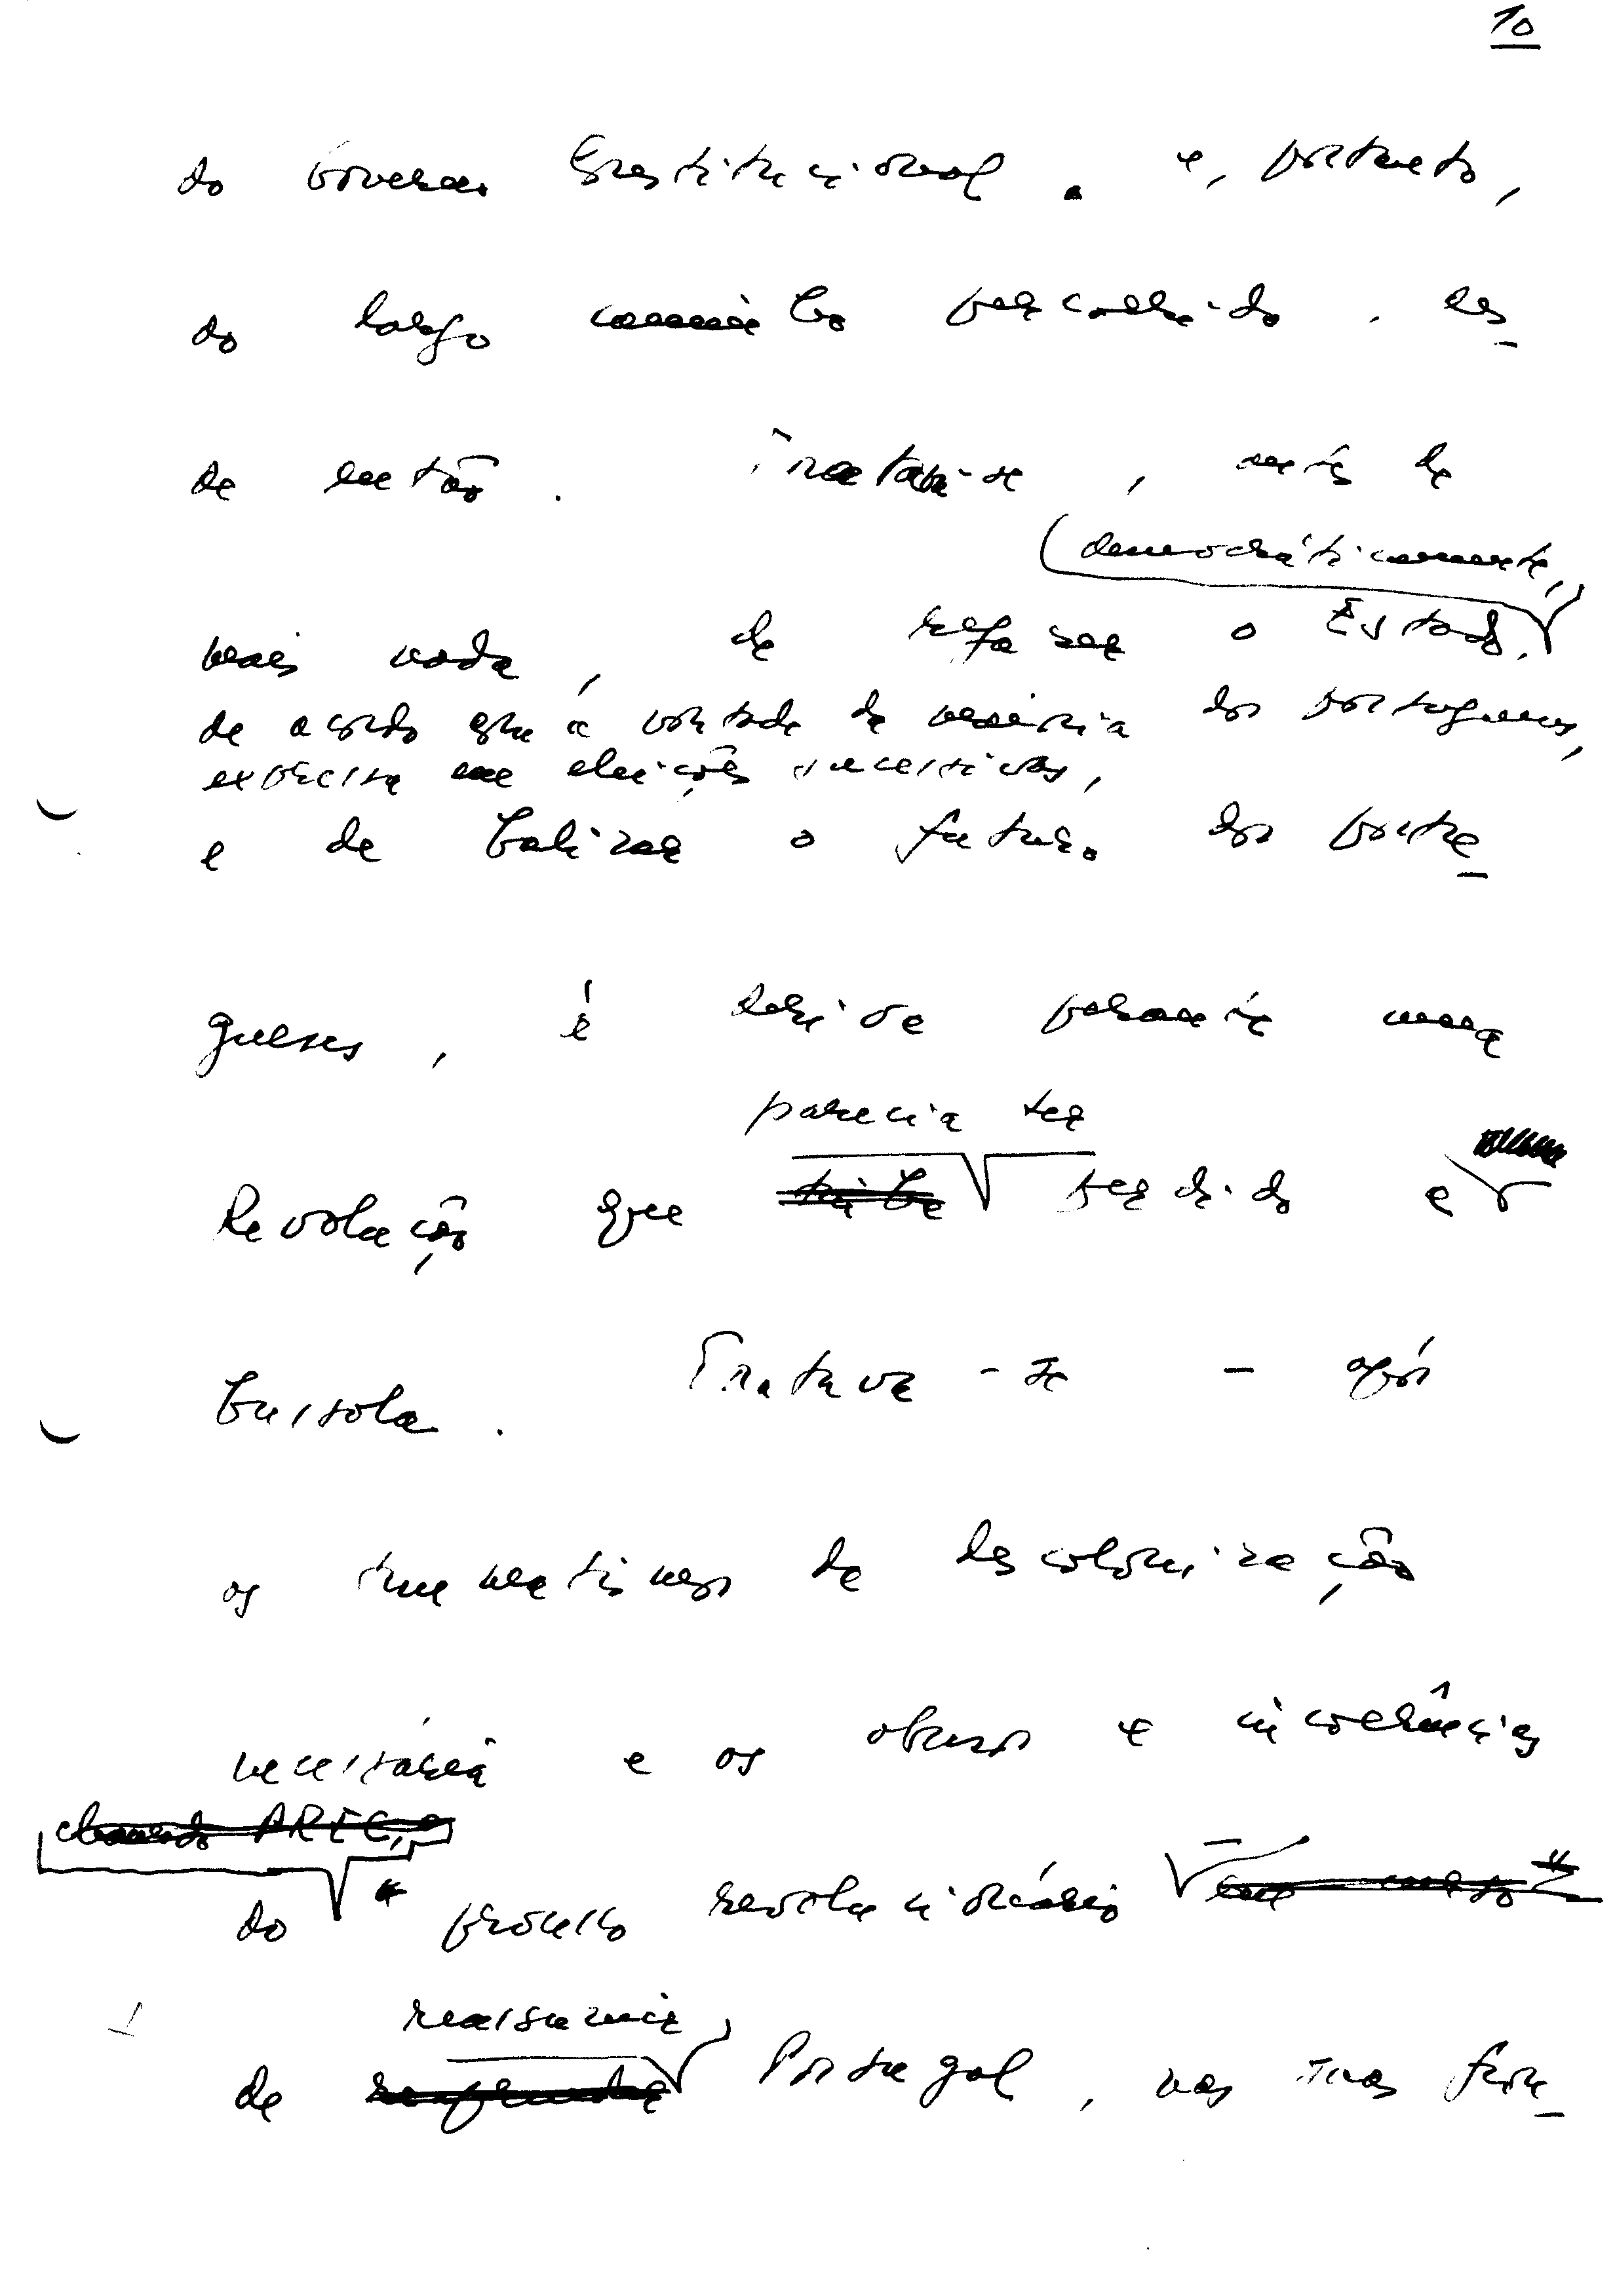 10
do Governo Constitucional . e, portanto,
do largo caminho percorrido . des_
de então . Tratava-se , antes de
democráticamente,
mais nada , de refazer o Estado,
de acordo com a vontade da maioria dos portugueses,
expressa em eleições sucessivas,
e de balizar o futuro dos portu_
gueses , à deriva perante uma
parecia ter
Revolução que tinha perdido a
bussola . Tratava-se - após
os traumatismos da descolonização
necessária e os abusos e incoerências
chamado PREC, e
do " processo revolucionário em curso"
reassumir
de Portugal , nas suas fron_